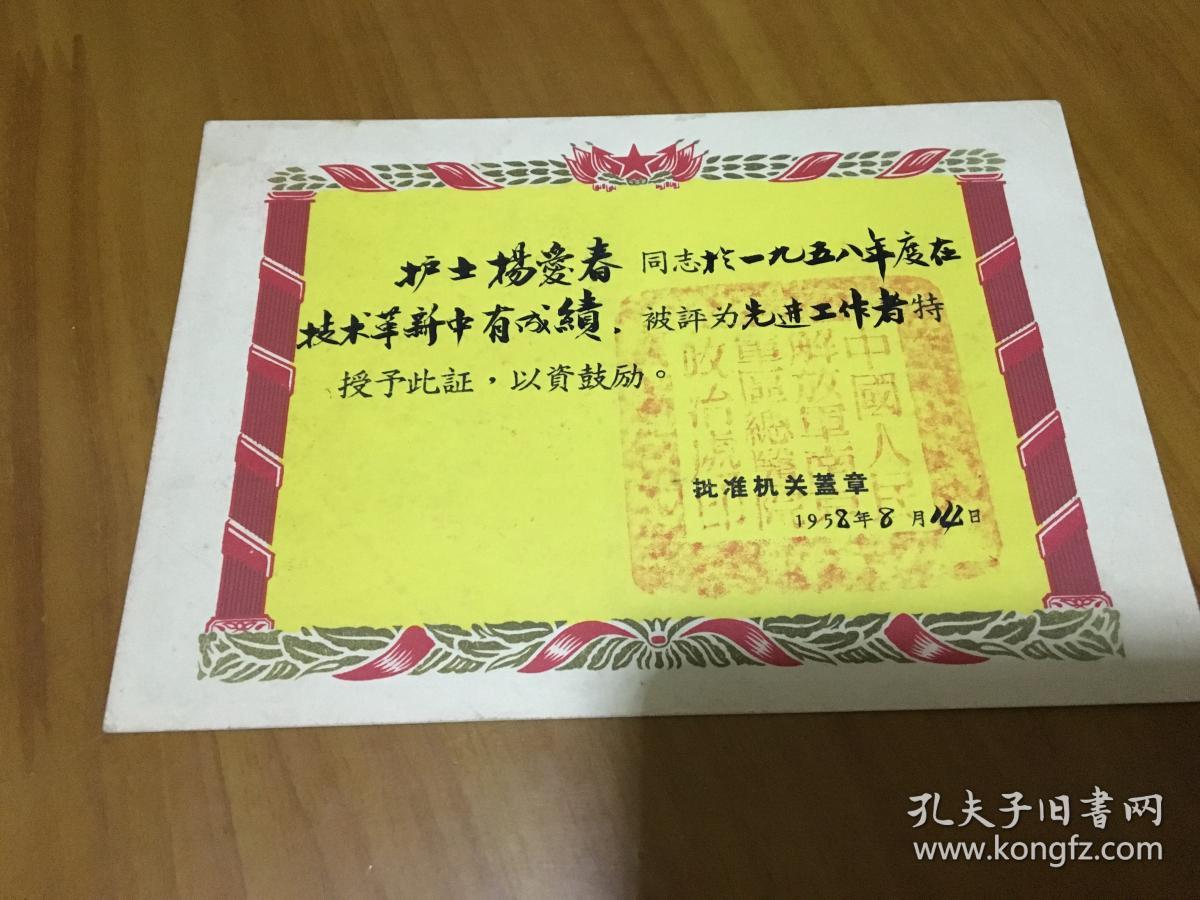 护士楊愛春 同志於一九五八年度在
技术革新中有成績、被評为先进工作者特
授予此証，以資鼓励。
中國人民
解放軍南京
軍區總醫院
政治處印
批准机关蓋章
1958年8月14日
孔夫子旧书网
www.kongfz.com